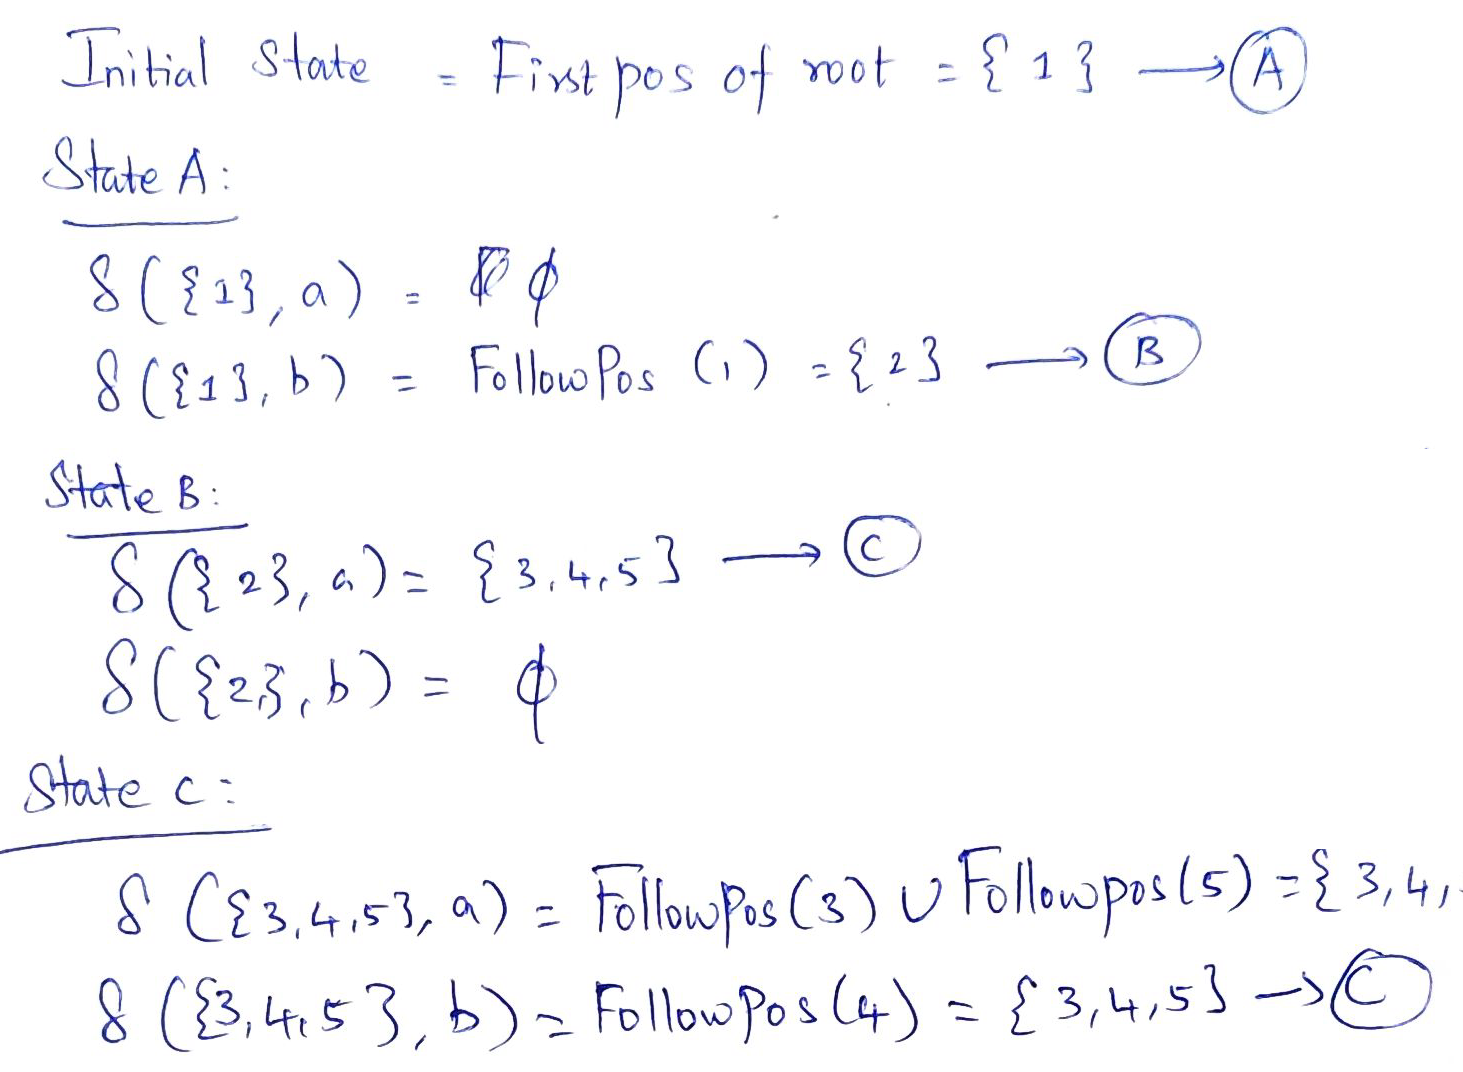 Initial State = First pos of root = { 1 } → A
State A:
δ ( { 1 }, a ) = ϕ
δ ( { 1 }, b ) = FollowPos (1) = { 2 } → B
State B:
δ ( { 2 }, a ) = { 3, 4, 5 } → C
δ ( { 2 }, b ) = ϕ
State C:
δ ( { 3, 4, 5 }, a ) = FollowPos (3) ∪ Followpos (5) = { 3, 4,
δ ( { 3, 4, 5 }, b ) = FollowPos (4) = { 3, 4, 5 } → C